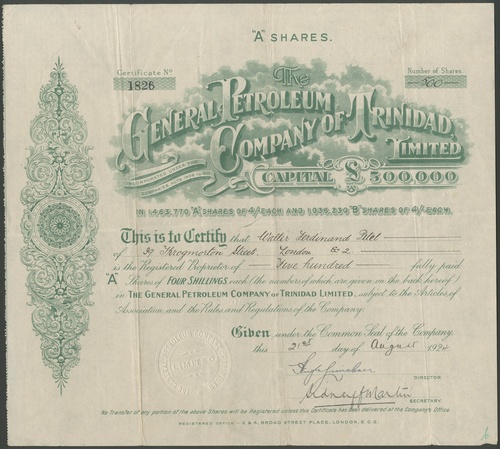 "A" SHARES.
Certificate No
1826
Number of Shares
500
The
GENERAL PETROLEUM
COMPANY OF TRINIDAD,
LIMITED
INCORPORATED UNDER THE
CAPITAL £500,000
IN 1,463,770 "A" SHARES OF 4/- EACH AND 1,036,230 "B" SHARES OF 4/- EACH.
This is to Certify that Walter Ferdinand
of 39 Throgmorton Street, London E.C.2
is the Registered Proprietor of Five hundred fully paid
"A" Shares of FOUR SHILLINGS each (the numbers of which are given on the back hereof)
in THE GENERAL PETROLEUM COMPANY OF TRINIDAD LIMITED, subject to the Articles of
Association and the Rules and Regulations of the Company.
Given under the Common Seal of the Company,
this 21st day of August 1924
DIRECTOR
Sidney J Martin
SECRETARY.
No Transfer of any portion of the above Shares will be Registered unless this Certificate has been delivered at the Company's Office.
REGISTERED OFFICE - 3 & 4, BROAD STREET PLACE, LONDON, E.C.2.